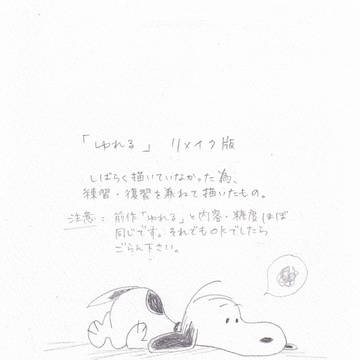 「ゆれる」 リメイク版
しばらく描いていなかった為、
練習・復習を兼ねて描いたもの。
注意： 前作「ゆれる」と内容・糖度ほぼ
同じです。それでもOKでしたら
ごらん下さい。